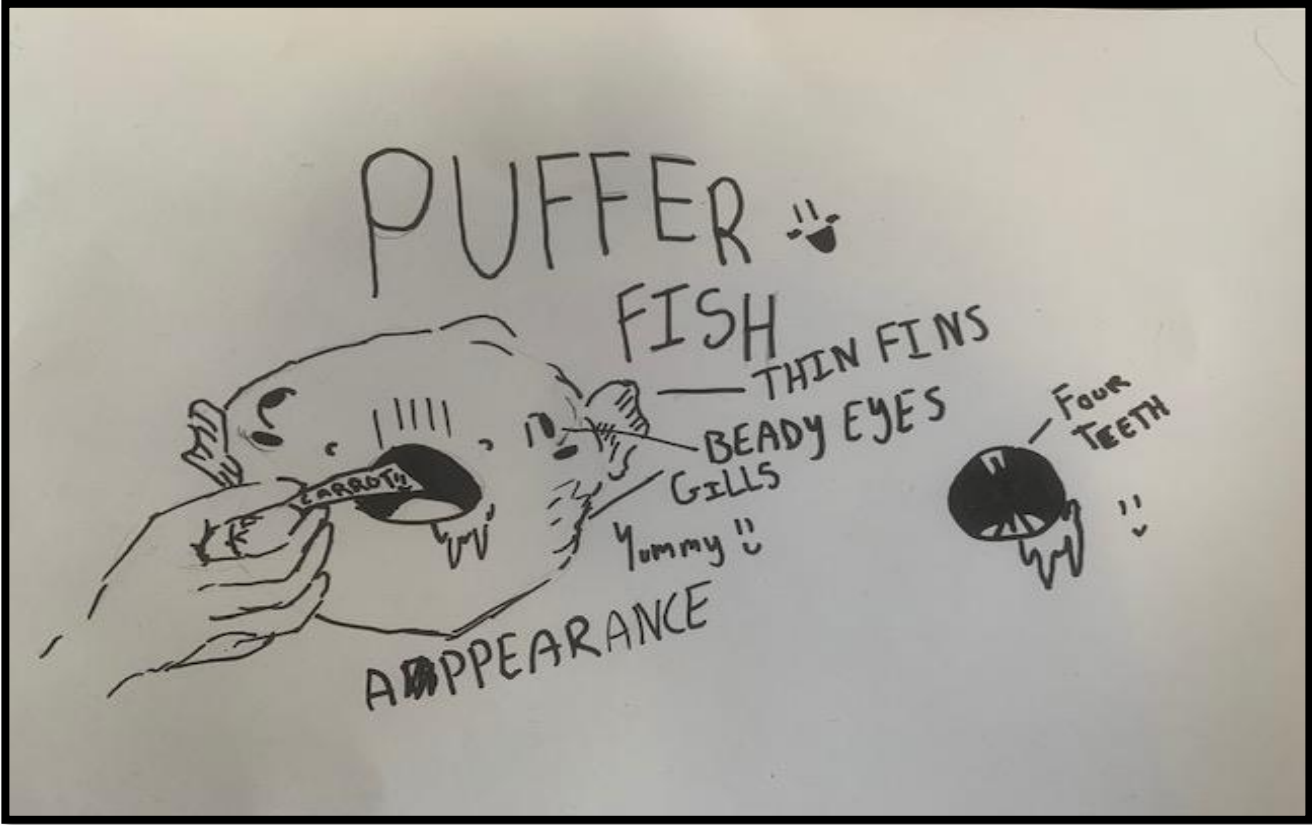 PUFFER
FISH
THIN FINS
BEADY EYES
GILLS
Yummy
CARROT!!
APPEARANCE
FOUR
TEETH